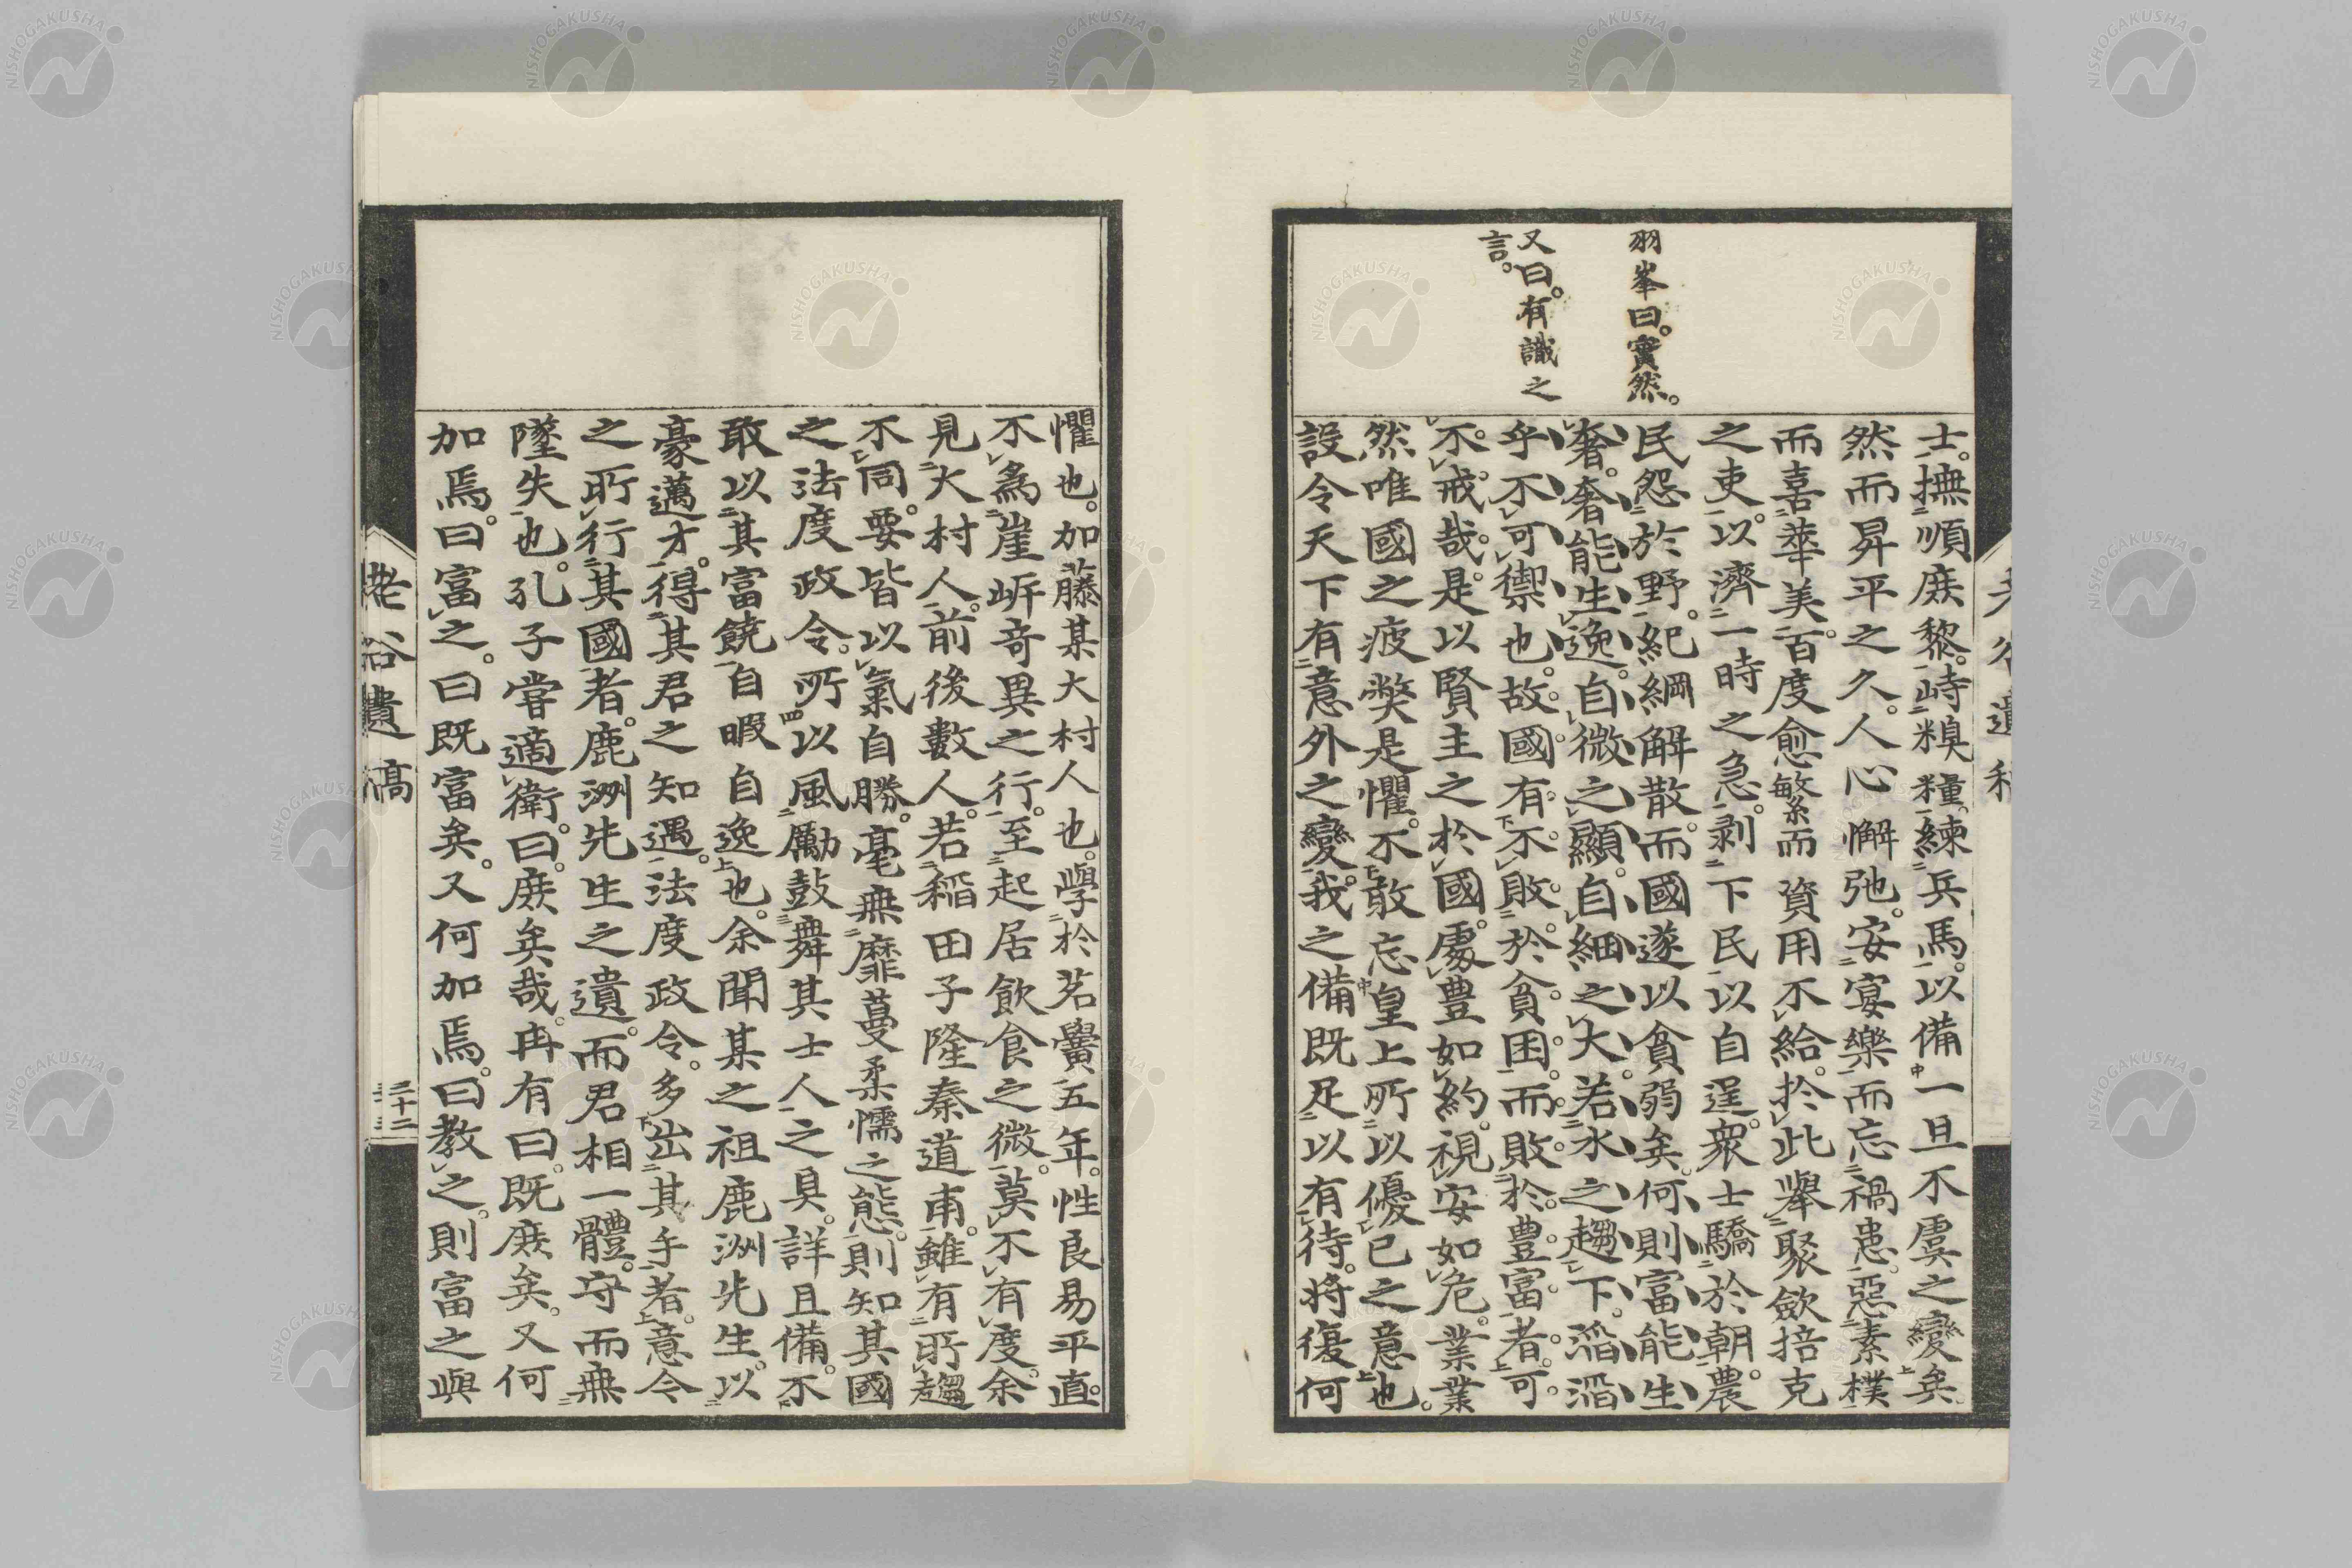 羽峯曰。實然。
又曰。有識之
言。
士。撫順庶黎。峙糗糧。練兵馬。以備一旦不虞之變矣。
然而昇平之久。人心懈弛。安宴樂而忘禍患。惡素樸
而喜華美。百度愈繁而資用不給。於此擧聚斂掊克
之吏。以濟一時之急。剥下民以自逞。衆士驕於朝。農
民怨於野。紀綱解散。而國遂以貧弱矣。何則富能生
奢。奢能生逸。自微之顯。自細之大。若水之趨下。滔滔
乎不可禦也。故國有不敗於貧困。而敗於豊富者。可
不戒哉。是以賢主之於國。處豊如約。視安如危。業業
然唯國之疲弊是懼。不敢忘皇上所以優已之意也。
設令天下有意外之變。我之備既足以有待。將復何
懼也。加藤某大村人也。學於茗黌五年。性良易平直。
不爲崖岸奇異之行。至起居飲食之微。莫不有度。余
見大村人。前後數人。若稲田子隆秦道甫。雖有所趨
不同。要皆以氣自勝。毫無靡蔓柔懦之態。則知其國
之法度政令。所以風勵鼓舞其士人之具。詳且備。不
敢以其富饒自暇自逸也。余聞某之祖鹿洲先生。以
豪邁才。得其君之知遇。法度政令。多出其手者。意令
之所行其國者。鹿洲先生之遺。而君相一體。守而無
墜失也。孔子嘗適衛。曰。庶矣哉。冉有曰。既庶矣。又何
加焉。曰富之。曰既富矣。又何加焉。曰教之。則富之與
老谷遺稿
二十二